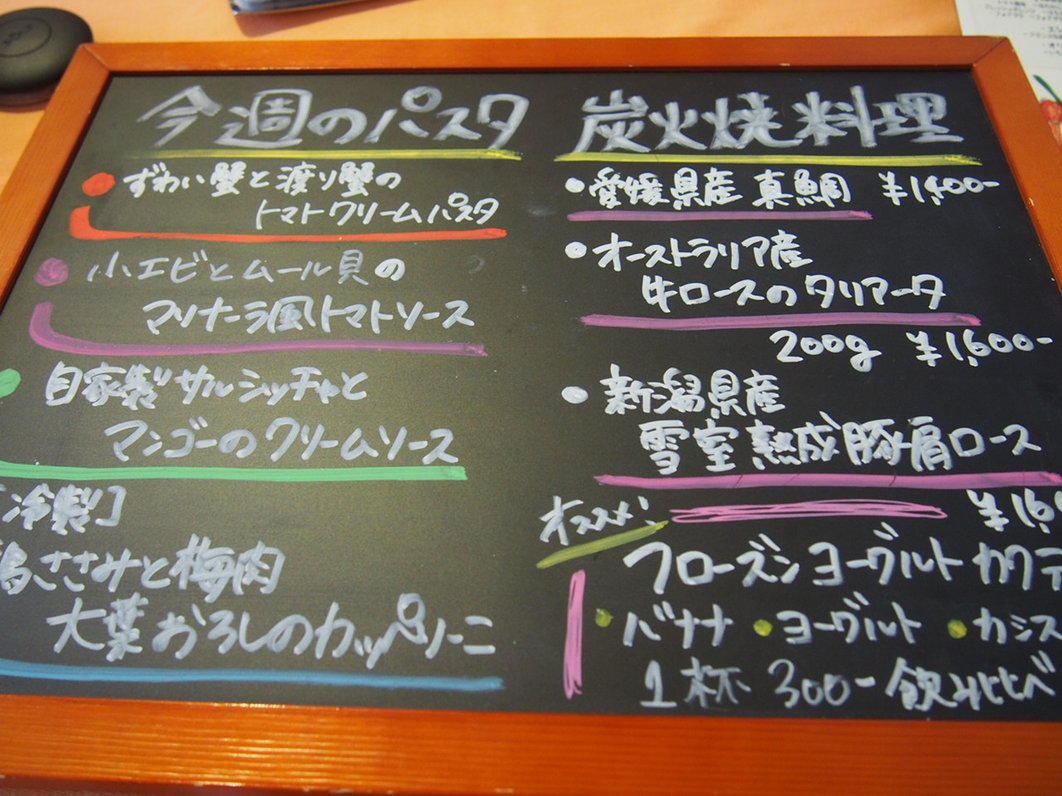 今週のパスタ
ずわい蟹と渡り蟹の
トマトクリームパスタ
小エビとムール貝の
マリナーラ風トマトソース
自家製サルシッチャと
マンゴーのクリームソース
[冷製]
鶏ささみと梅肉
大葉おろしのカッペリーニ
炭火焼料理
愛媛県産 真鯛 ¥1,400-
オーストラリア産
牛ロースのタリアータ
200g ¥1,600-
新潟県産
雪室熟成豚肩ロース
¥1,6
オススメ!
フローズンヨーグルトカクテ
バナナ ヨーグルト カシス
1杯 300- 飲み比べ